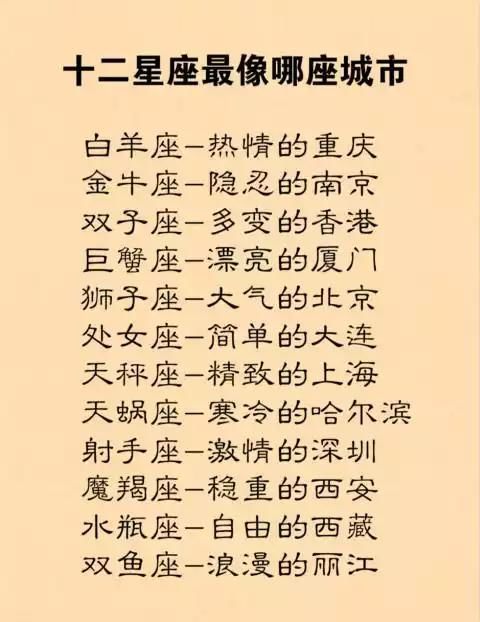 十二星座最像哪座城市
白羊座–热情的重庆
金牛座–隐忍的南京
双子座–多变的香港
巨蟹座–漂亮的厦门
狮子座–大气的北京
处女座–简单的大连
天秤座–精致的上海
天蜗座–寒冷的哈尔滨
射手座–激情的深圳
魔羯座–稳重的西安
水瓶座–自由的西藏
双鱼座–浪漫的丽江